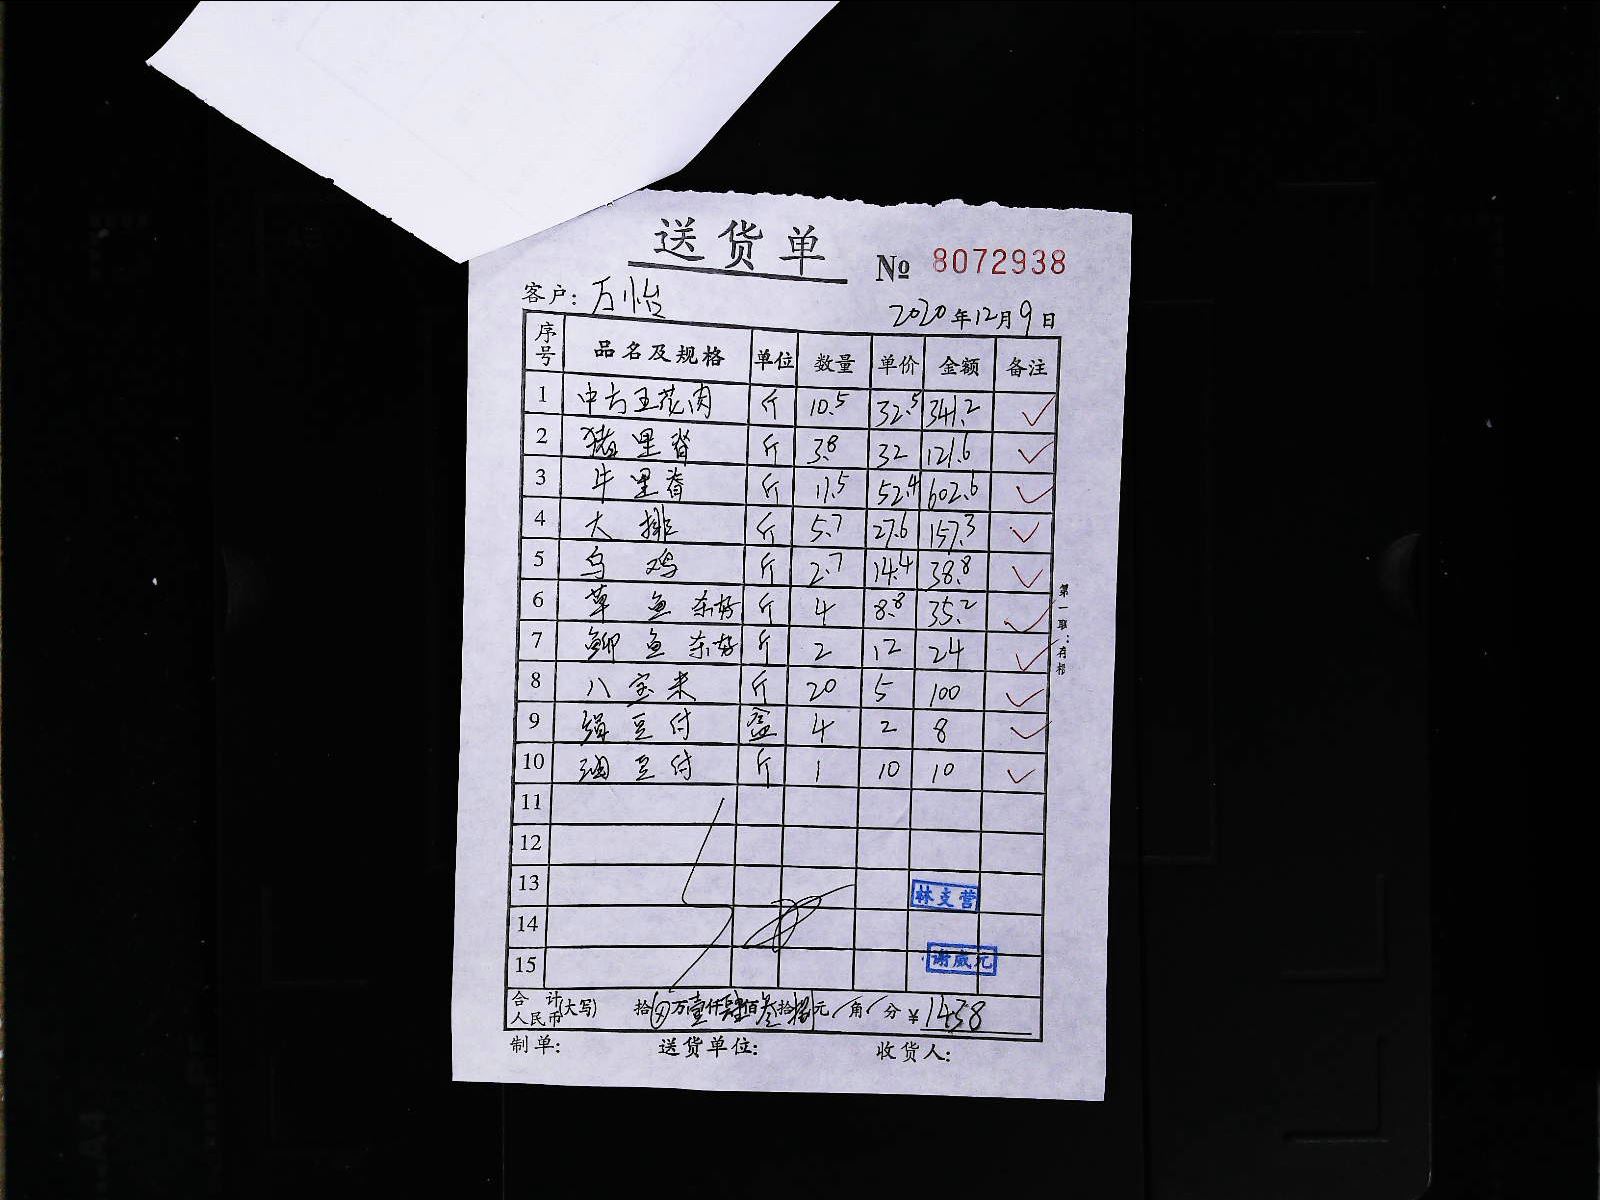 送货单
№ 8072938
客户: 万怡
2020年12月9日
序号 品名及规格 单位 数量 单价 金额 备注
1 中方五花肉 斤 10.5 32.5 341.2 ✓
2 猪里脊 斤 3.8 32 121.6 ✓
3 牛里脊 斤 11.5 52.4 602.6 ✓
4 大排 斤 5.7 27.6 157.3 ✓
5 乌鸡 斤 2.7 14.4 38.8 ✓
6 草鱼杀好 斤 4 8.8 35.2 ✓
7 鲫鱼杀好 斤 2 12 24 ✓
8 八宝米 斤 20 5 100 ✓
9 绢豆付 盒 4 2 8 ✓
10 油豆付 斤 1 10 10 ✓
11
12
13 林支营
14
15 谢威元
合计人民币(大写) 拾⊗万壹仟肆佰叁拾捌元/角/分 ¥1438
制单: 送货单位: 收货人:
第一联:存根